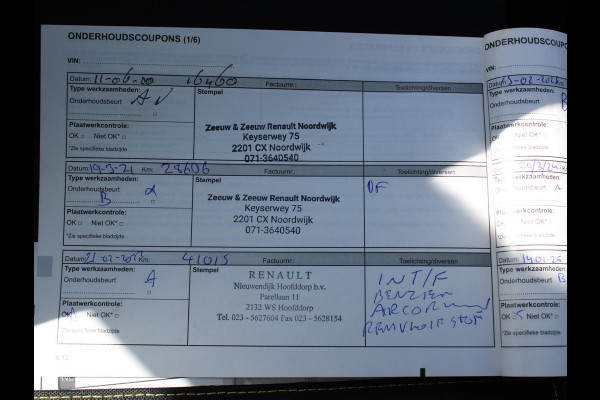 ONDERHOUDSCOUPONS (1/6)
VIN:
Datum: 11-06-20 16460 Factuurnr.: Toelichting/diversen
Type werkzaamheden:
Onderhoudsbeurt A
Stempel
Zeeuw & Zeeuw Renault Noordwijk
Keyserwey 75
2201 CX Noordwijk
071-3640540
Plaatwerkcontrole:
OK □ Niet OK* □
*Zie specifieke bladzijde
Datum: 19-3-21 Km: 28606 Factuurnr.: Toelichting/diversen
Type werkzaamheden:
Onderhoudsbeurt
B
Stempel
Zeeuw & Zeeuw Renault Noordwijk
Keyserwey 75
2201 CX Noordwijk
071-3640540
Plaatwerkcontrole:
OK □ Niet OK* □
*Zie specifieke bladzijde
Datum: 21-02-2022 Km: 41015 Factuurnr.: Toelichting/diversen
Type werkzaamheden:
Onderhoudsbeurt A
Stempel
RENAULT
Nieuwendijk Hoofddorp b.v.
Parellaan 11
2132 WS Hoofddorp
Tel. 023 - 5627604 Fax 023 - 5628154
INT/F
Plaatwerkcontrole:
OK Niet OK* □
*Zie specifieke bladzijde
6.12
ONDERHOUDSCOUPO
VIN:
Type werkzaamheden:
Onderhoudsbeurt B
Plaatwerkcontrole:
OK □ Niet OK* □
*Zie specifieke bladzijde
20/3/24
werkzaamheden:
Onderhoudsbeurt A
Plaatwerkcontrole:
OK □ Niet OK* □
*Zie specifieke bladzijde
Datum:
Type werkzaamheden:
Onderhoudsbeurt B
Plaatwerkcontrole:
OK Niet OK* □
*Zie specifieke bladzijde